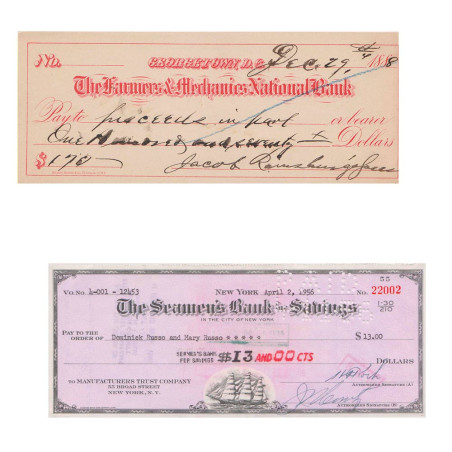 No. GEORGETOWN, D.C. Dec. 29, 188
The Farmers & Mechanics National Bank
Pay to proceeds in part or bearer
One Hundred and seventy Dollars
$170 Jacob Ramsburg
55
Vo. No. 4-001 - 12453 NEW YORK April 2, 1956 No. 22002
The Seamen's Bank for Savings
IN THE CITY OF NEW YORK
PAY TO THE
ORDER OF Dominick Russo and Mary Russo * * * * * $ 13.00
SEAMEN'S BANK
FOR SAVINGS $13 AND 00 CTS DOLLARS
TO MANUFACTURERS TRUST COMPANY
55 BROAD STREET
NEW YORK, N.Y.
AUTHORIZED SIGNATURE
AUTHORIZED SIGNATURE